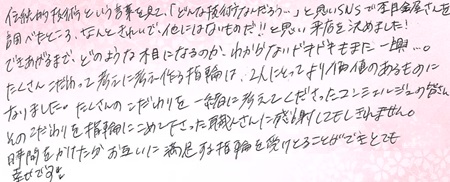 伝統的技術という言葉を見て、「どんな技術なんだろう…」と思いSNSで杢目金屋さんを
調べたところ、なんときれいで、他にはないものだ!!と思い来店を決めました!
できあがるまで、どのような木目になるのか、わからないドキドキもまた一興…。
たくさんこだわって考えに考え作る指輪は、2人にとってより価値のあるものに
なりました。たくさんのこだわりを一緒に考えてくださったコンシェルジュの皆さん
そのこだわりを指輪にこめて下さった職人さんに感謝してもしきれません。
時間をかけた分お互いに満足する指輪を受けとることができてとても
幸せです!!